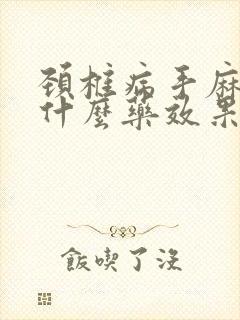 頚椎病手麻
什麼藥效果
飯喫了沒